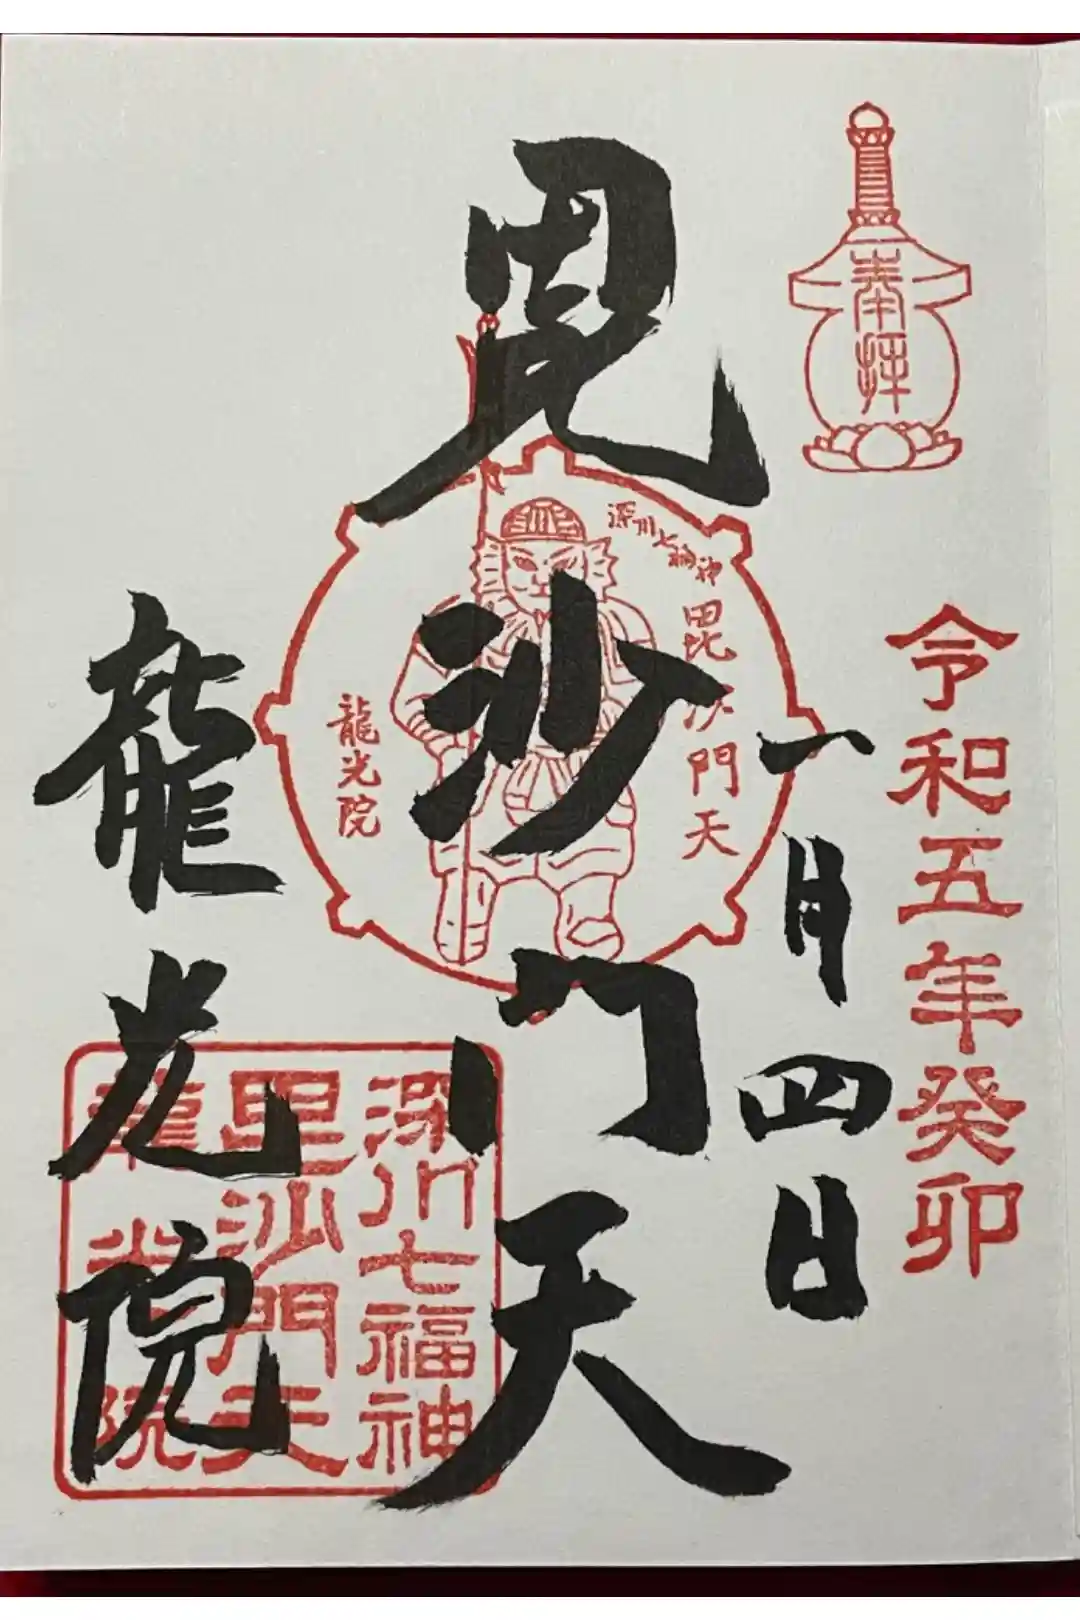 奉拝
令和五年癸卯
一月四日
毘沙門天
深川七福神
毘沙門天
龍光院
深川七福神
毘沙門天
龍光院
龍光院